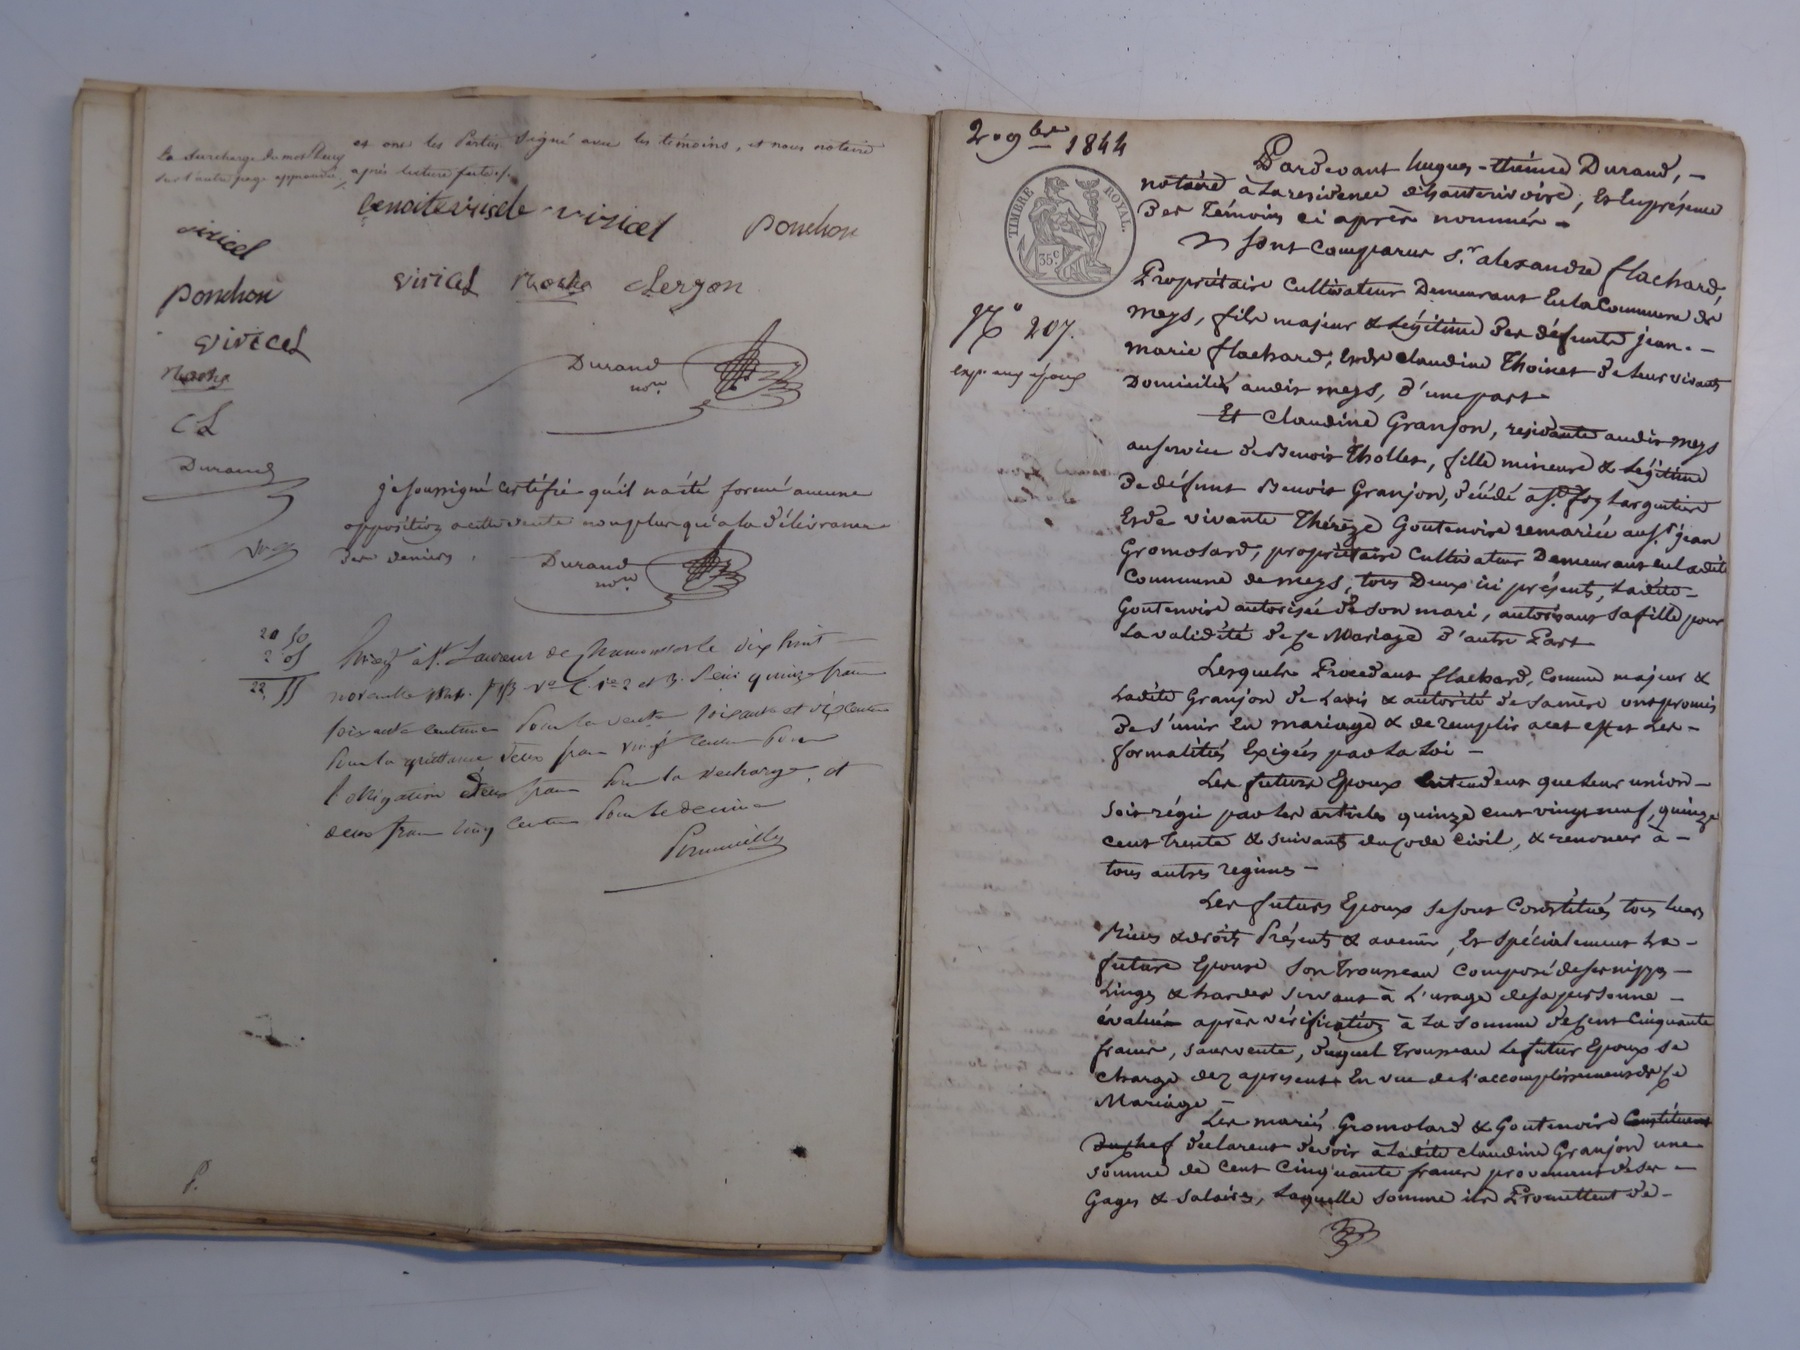 et ont les Parties signé avec les témoins, et nous notaire
après lecture faite
La surcharge du mot
sur l'autre page approuvée
viricel
ponchon
viricel
CL
Durand
viricel ponchon
viricel Clerzon
Durand
nore
je soussigné certifie qu'il n'a été formé aucune
opposition a cette vente non plus qu'a la délivrance
des deniers.
Durand
nore
20 50
2 05
22 55
St. Laurent de Chamousset le dix huit
novembre 1844. quinze francs
soixante centimes pour la vente soixante et dix centimes
pour la quittance deux francs vingt centimes pour
l'obligation deux francs pour la decharge, et
deux francs cinq centimes pour le decime
P.
2. 9bre 1844
TIMBRE ROYAL.
35c
No 207.
exp. aux époux
Pardevant hugues-thémce Durand, -
notaire à la residence d'hauterivoire, Et En présence
des témoins ci après nommés -
Sont comparus Sr. alexandre flachard,
Propriétaire Cultivateur Demeurant En la Commune de
meys, fils majeur & Légitime des défunts jean. -
marie flachard, Et de claudine Thoinet de leur vivants
Domiciliés audit meys, d'une part -
Et Claudine Granjon, residante audit meys
au service de Benoit Thollet, fille mineure & Légitime
De défunt Benoit Granjon, décédé a St. foy Largentiere
Et de vivante Thérèze Goutenoire remariée au Sr. jean
Gromolard, propriétaire Cultivateur Demeurant en ladite
Commune de meys, tous Deux ici présents, Ladite -
Goutenoire autorisée de son mari, autorisant sa fille pour
La validité de ce Mariage d'autre Part
Lesquels Procedant flachard, Comme majeur &
Ladite Granjon de L'avis & autorité de sa mère ont promis
De s'unir En mariage & de remplir a cet effet Les -
formalités Exigées par La Loi -
Les futurs Epoux Entendent que leur union -
Soit régie par les articles quinze cent vingt neuf, quinze
cent trente & suivants du Code Civil, & renoncer à -
tous autres regimes -
Les futurs Epoux se sont Constitués tous leurs
Biens & droits Présents & avenir, Et spécialement La -
future Epouse Son trousseau Composé de ses nippes -
Linges & hardes servant à L'usage de sa personne -
évalués après vérification à la somme de Cent Cinquante
francs, sans vente, duquel trousseau Le futur Epoux se
charge dez apresent En vue de L'accomplissement de ce
Mariage -
Les mariés Gromolard & Goutenoire Constituent
declarent devoir à Ladite claudine Granjon une
somme de Cent Cinquante francs provenant de Ses -
Gages & Salaires, Laquelle somme ils Promettent de -